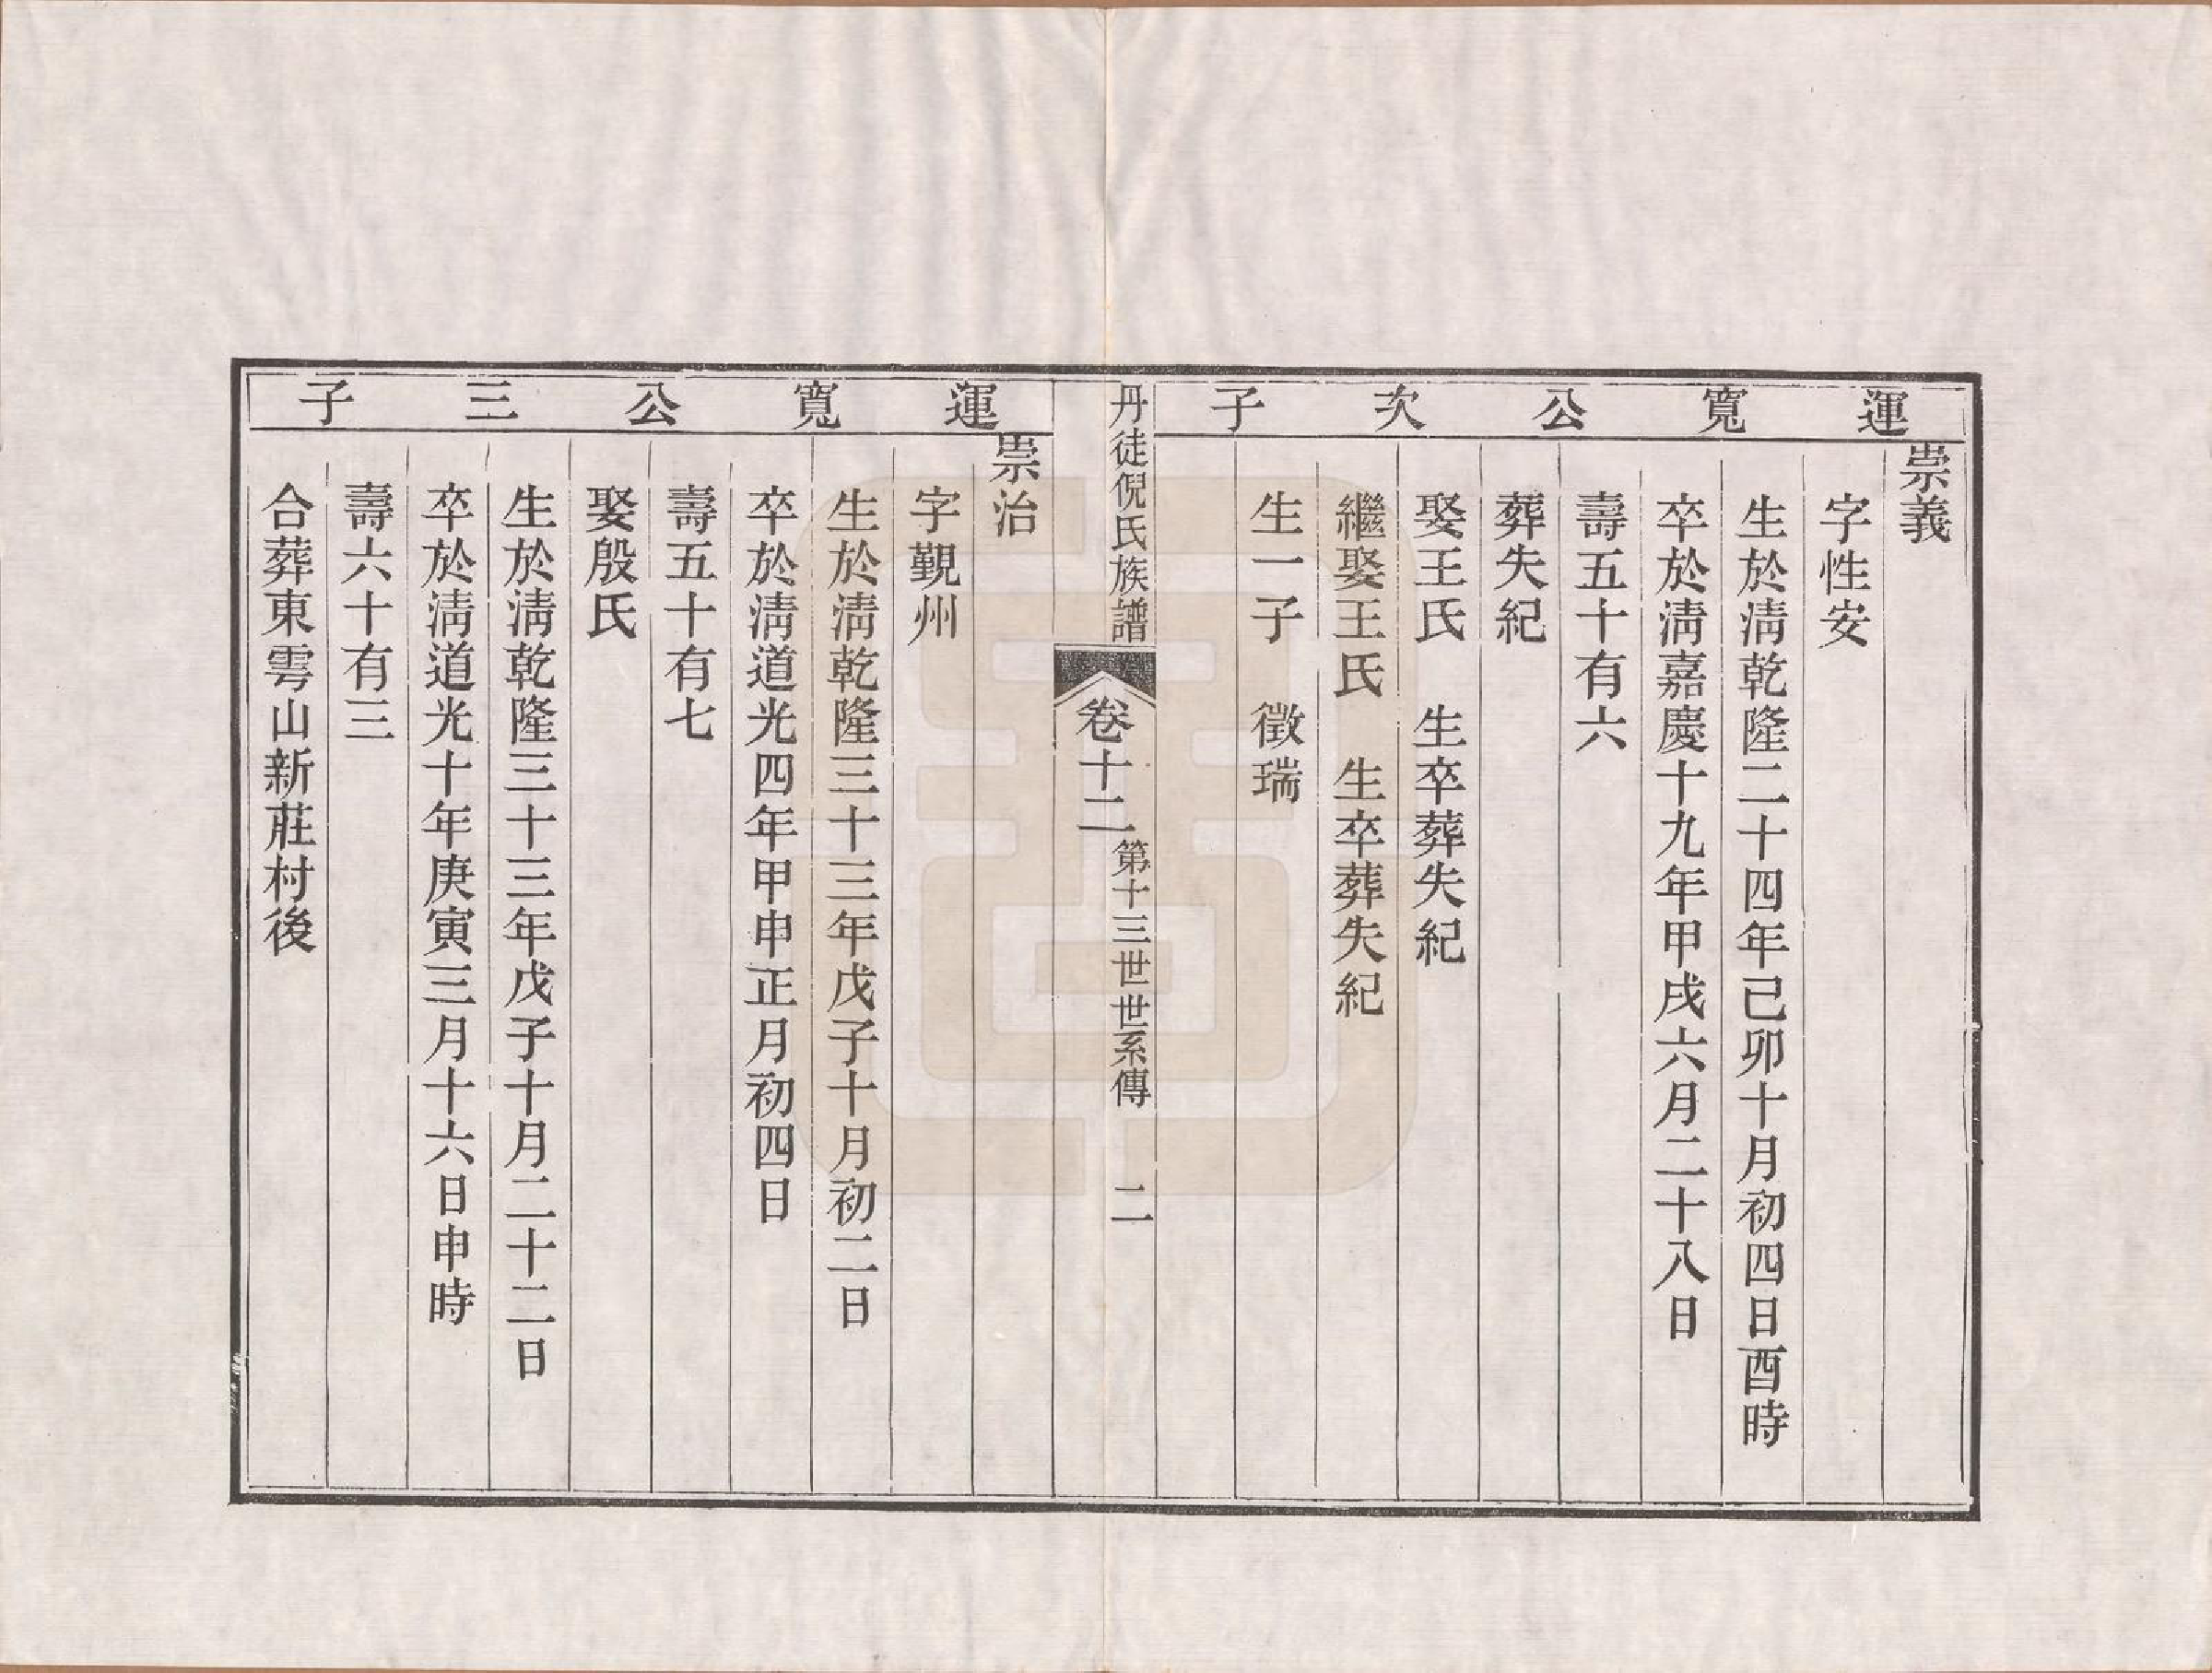 運寬公次子
崇義
字性安
生於淸乾隆二十四年己卯十月初四日酉時
卒於淸嘉慶十九年甲戌六月二十八日
壽五十有六
葬失紀
娶王氏　生卒葬失紀
繼娶王氏　生卒葬失紀
生一子　徵瑞
丹徒倪氏族譜
卷十二
第十三世世系傳
二
運寬公三子
崇治
字觀州
生於淸乾隆三十三年戊子十月初二日
卒於淸道光四年甲申正月初四日
壽五十有七
娶殷氏
生於淸乾隆三十三年戊子十月二十二日
卒於淸道光十年庚寅三月十六日申時
壽六十有三
合葬東雩山新莊村後